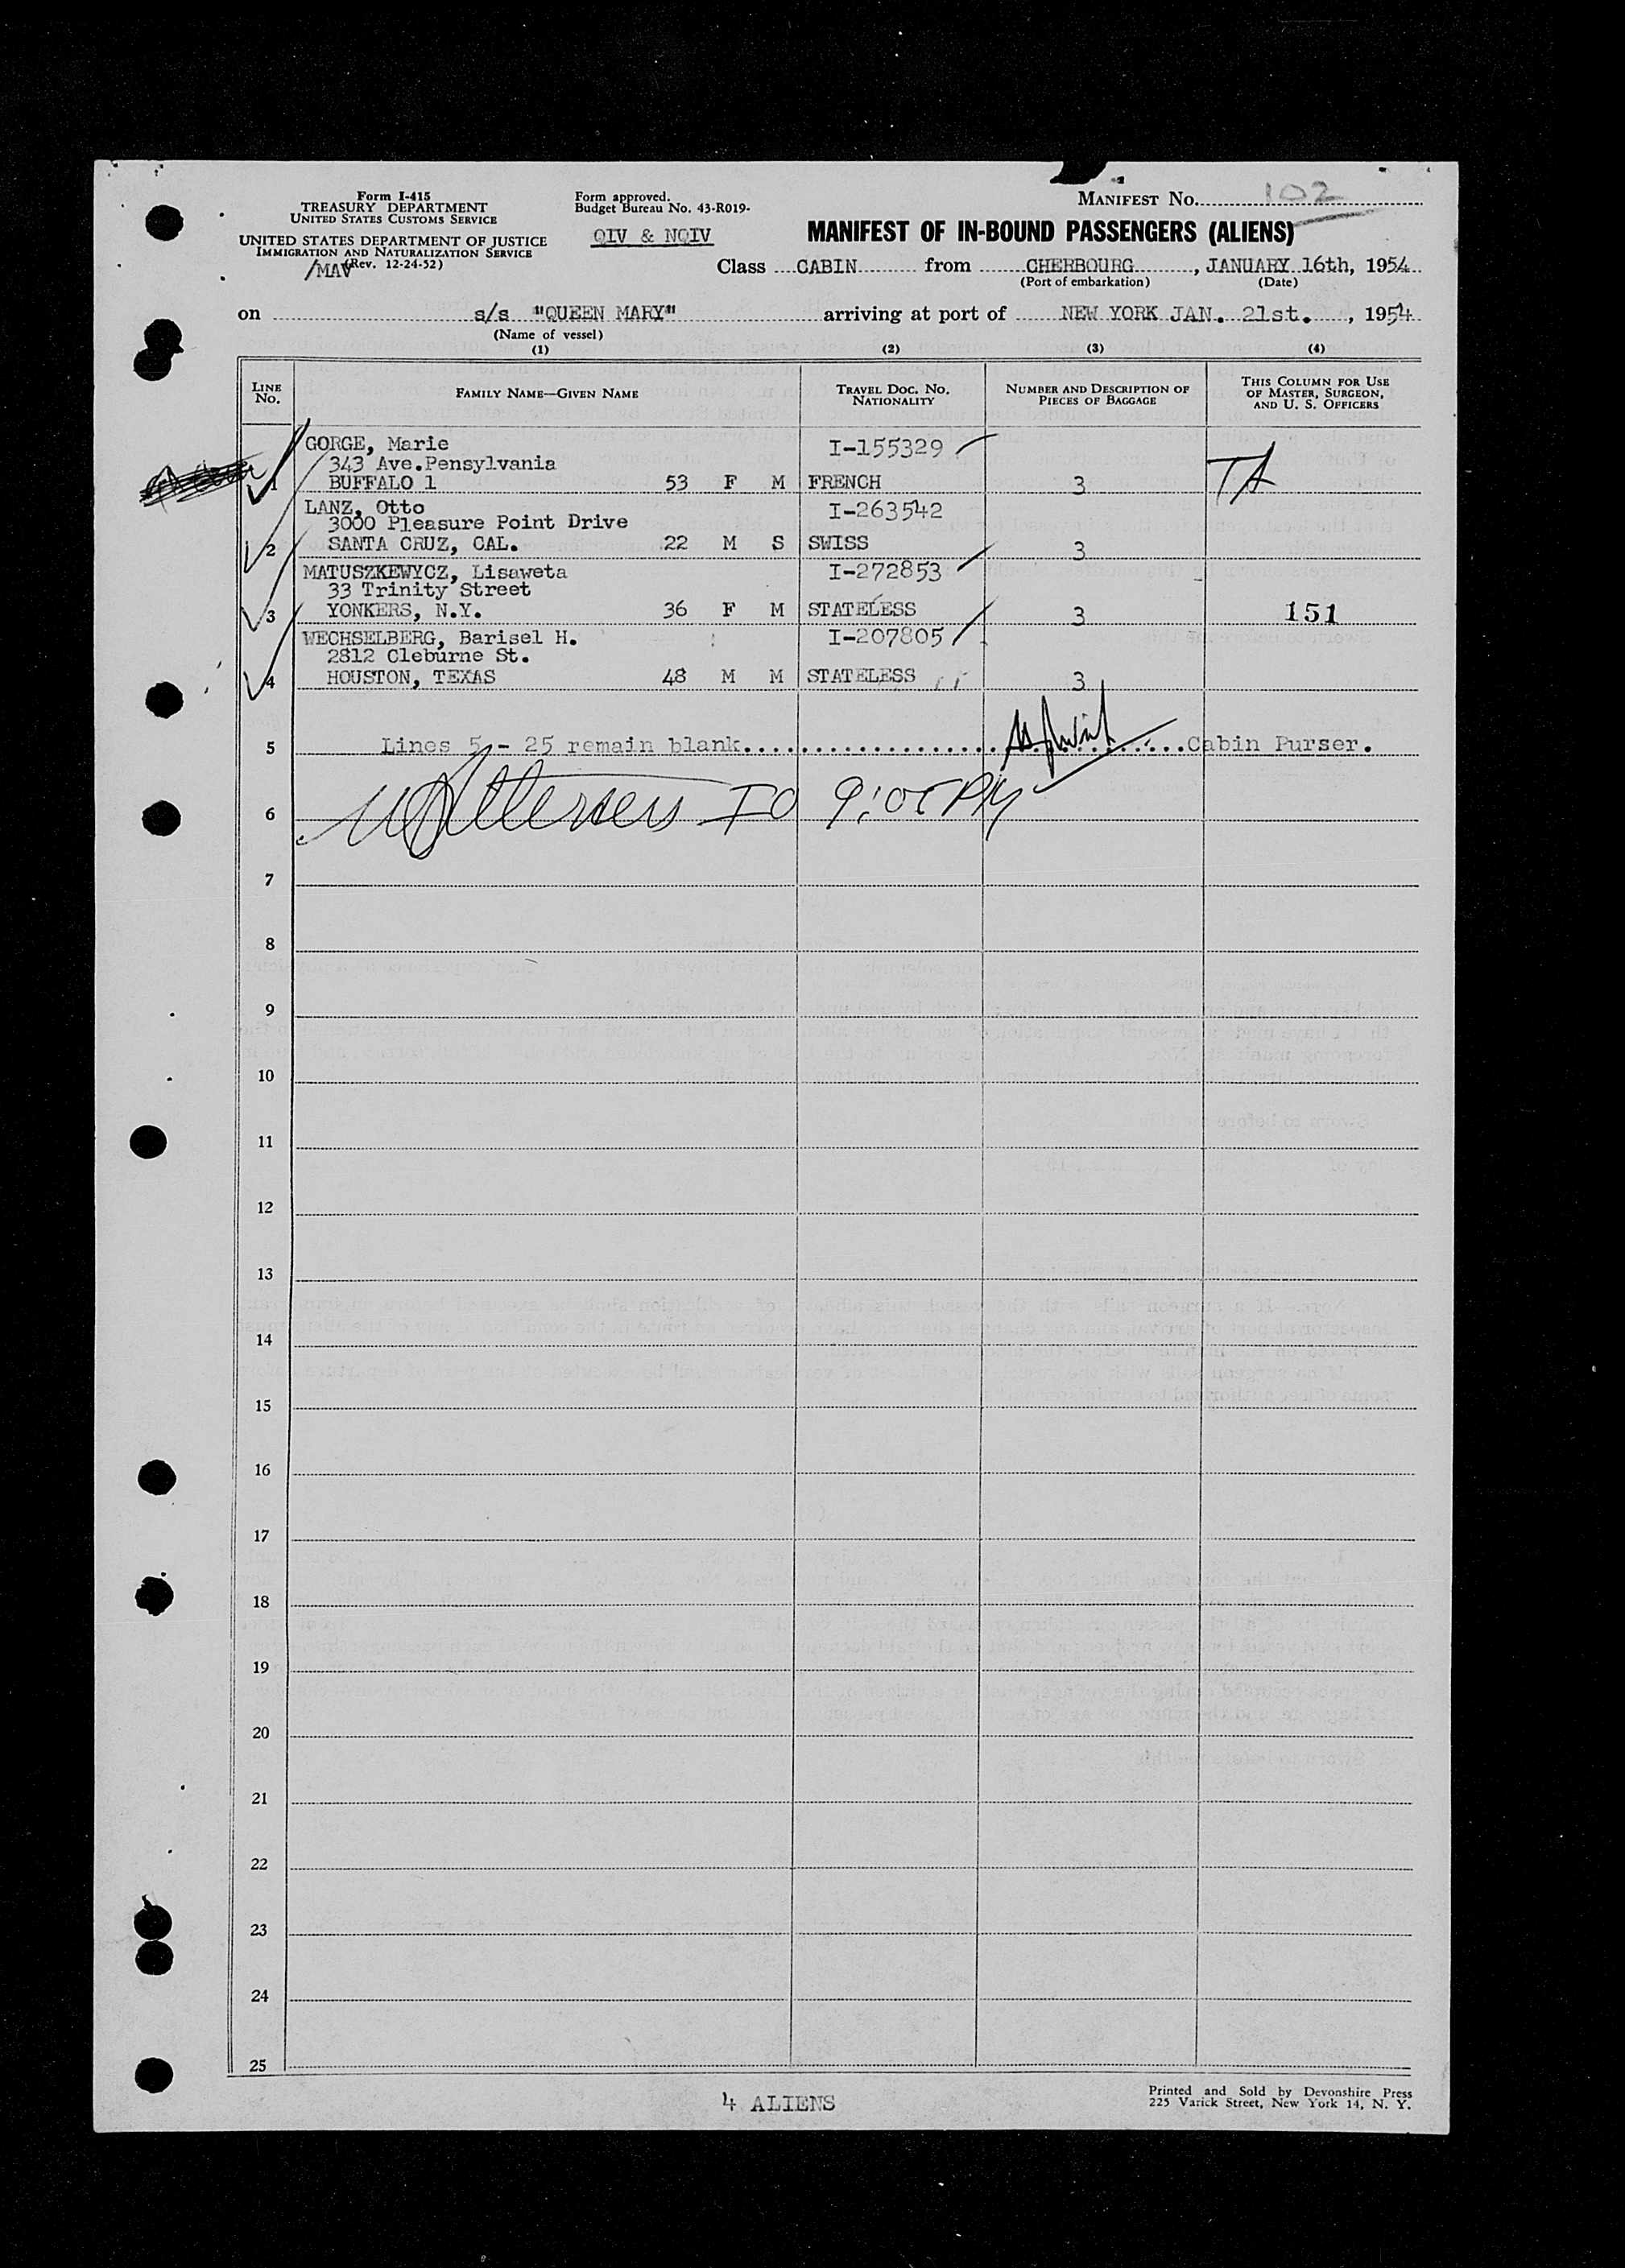 Form I-415
TREASURY DEPARTMENT
UNITED STATES CUSTOMS SERVICE
UNITED STATES DEPARTMENT OF JUSTICE
IMMIGRATION AND NATURALIZATION SERVICE
(Rev. 12-24-52)
/MAV
Form approved.
Budget Bureau No. 43-R019-
QIV & NQIV
MANIFEST No. 102
MANIFEST OF IN-BOUND PASSENGERS (ALIENS)
Class CABIN from CHERBOURG, JANUARY 16th, 1954
(Port of embarkation) (Date)
on s/s "QUEEN MARY" arriving at port of NEW YORK JAN. 21st., 1954
(Name of vessel)
(1) (2) (3) (4)
LINE No. FAMILY NAME—GIVEN NAME TRAVEL DOC. NO. NATIONALITY NUMBER AND DESCRIPTION OF PIECES OF BAGGAGE THIS COLUMN FOR USE OF MASTER, SURGEON, AND U. S. OFFICERS
GORGE, Marie I-155329
343 Ave.Pensylvania
1 BUFFALO 1 53 F M FRENCH 3 TA
LANZ, Otto I-263542
3000 Pleasure Point Drive
2 SANTA CRUZ, CAL. 22 M S SWISS 3
MATUSZKEWYCZ, Lisaweta I-272853
33 Trinity Street
3 YONKERS, N.Y. 36 F M STATELESS 3 151
WECHSELBERG, Barisel H. I-207805
2812 Cleburne St.
4 HOUSTON, TEXAS 48 M M STATELESS 3
5 Lines 5 - 25 remain blank. Cabin Purser.
6 IO 9:05 PM
7
8
9
10
11
12
13
14
15
16
17
18
19
20
21
22
23
24
25
4 ALIENS
Printed and Sold by Devonshire Press
225 Varick Street, New York 14, N. Y.